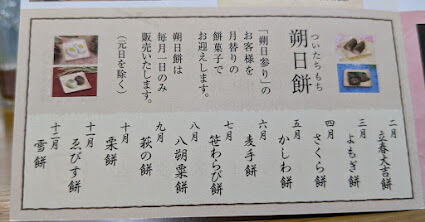 ついたちもち
朔日餅
「朔日参り」の
お客様を
月替りの
餅菓子で
お迎えします。
朔日餅は
毎月一日のみ
販売いたします。
(元日を除く)
二月 立春大吉餅
三月 よもぎ餅
四月 さくら餅
五月 かしわ餅
六月 麦手餅
七月 笹わらび餅
八月 八朔粟餅
九月 萩の餅
十月 栗餅
十一月 ゑびす餅
十二月 雪餅